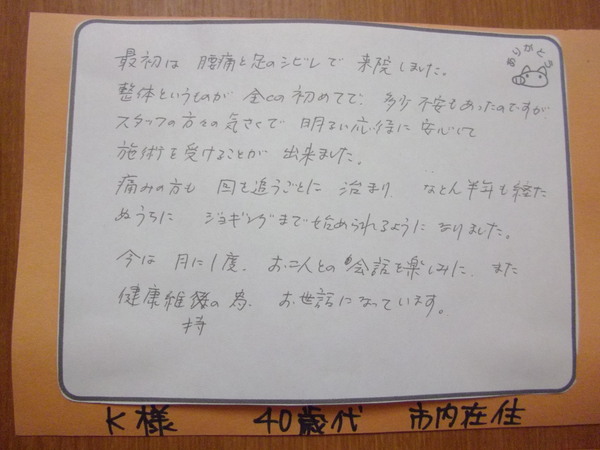 ありがとう
最初は 腰痛と足のシビレで 来院しました。
整体というものが 全くの初めてで、多少不安もあったのですが
スタッフの方々の気さくで 明るい応待に 安心して
施術を受けることが 出来ました。
痛みの方も 回を追うごとに 治まり なんと半年も経た
ぬうちに ジョギングまで始められるように なりました。
今は 月に1度、お二人との 会話を楽しみに、また
健康維持の為、お世話になっています。
K様 40歳代 市内在住